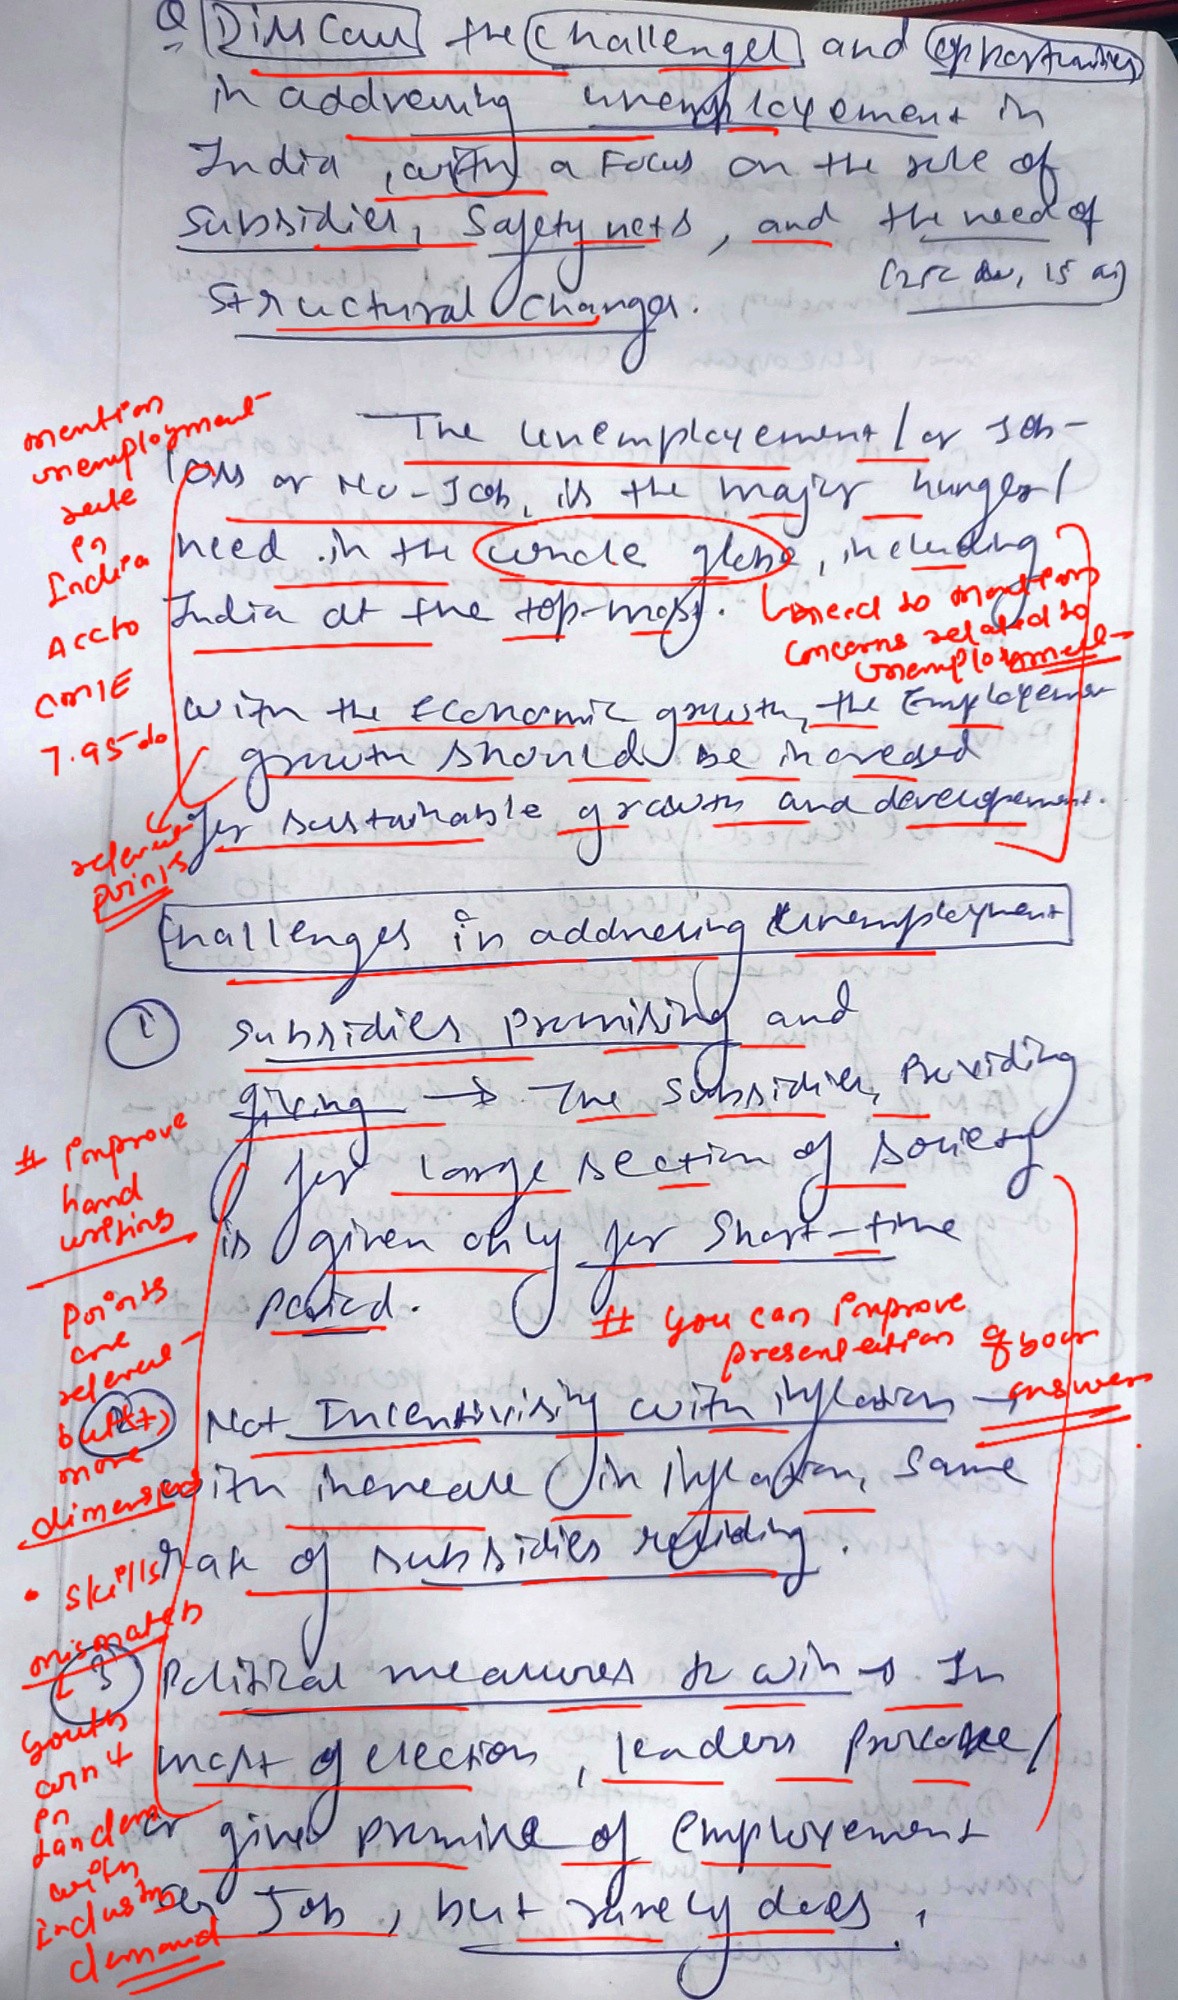 Q Discuss the Challenges and opportunities
in addressing unemployement in
India, with a Focus on the role of
subsidies, Safety nets, and the need of
Structural Changes.
mention
unemployment
rate
in
India
Accto
CMIE
7.95%
relevant
points
The Unemployement/or Job-
loss or No-Job, is the major hunger/
need in the whole globe, including
India at the top-most.
need to mention
concerns related to
unemployment
with the Economic growth, the Employement
growth should be increased
for sustainable growth and development.
Challenges in addressing Unemployment
1 Subsidies promising and
giving → The Subsidies, Providing
for large section of society
is given only for Short-time
period.
# Improve
hand
writing
Points
are
relevant
but
more
dimension
• skills
mismatch
youth
arn't
in
tandem
with
industry
demand
# You can improve
presentation of your
answers
2 Not Incentivising with inflation →
with increase in inflation, same
rate of subsidies
3 Political measures to win → In
most of election, leaders
or given promise of employement
or Job, but rarely does.